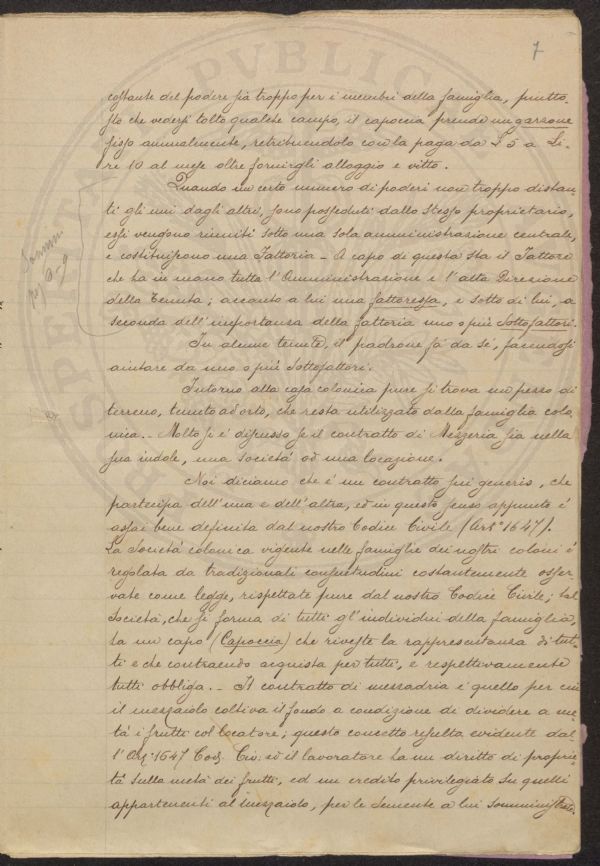 7
costante del podere sia troppo per i membri della famiglia, piutto-
sto che vedersi tolto qualche campo, il capoccia prende un garzone
fisso annualmente, retribuendolo con la paga da L 5 a Li-
re 10 al mese oltre fornirgli alloggio e vitto.
Quando un certo numero di poderi non troppo distan-
ti gli uni dagli altri, sono posseduti dallo stesso proprietario,
essi vengono riuniti sotto una sola amministrazione centrale,
e costituiscono una Fattoria - A capo di questa sta il Fattore
che ha in mano tutta l'Amministrazione e l'alta Direzione
della Tenuta; accanto a lui una fattoressa, e sotto di lui, a
seconda dell'importanza della fattoria uno o più Sottofattori.
In alcune tenute, il padrone fa da sé, facendosi
aiutare da uno o più Sottofattori.
Intorno alla casa colonica pure si trova un pezzo di
terreno, tenuto ad orto, che resta utilizzato dalla famiglia colo-
nica. - Molto si è discusso se il contratto di Mezzeria sia nella
sua indole, una società od una locazione.
Noi diciamo che è un contratto sui generis, che
partecipa dell'una e dell'altra, ed in questo senso appunto è
assai bene definita dal nostro Codice Civile (Art° 1647).
La Società colonica vigente nelle famiglie dei nostri coloni è
regolata da tradizionali consuetudini costantemente osser-
vate come legge, rispettate pure dal nostro Codice Civile; tal
Società, che si forma di tutti gl'individui della famiglia,
ha un capo (Capoccia) che riveste la rappresentanza di tut-
ti e che contraendo acquista per tutti, e respettivamente
tutti obbliga. - Il contratto di mezzadria è quello per cui
il mezzaiolo coltiva il fondo a condizione di dividere a me-
tà i frutti col locatore; questo concetto resulta evidente dal-
l'Art: 1647 Cod. Civ: ed il lavoratore ha un diritto di proprie-
tà sulla metà dei frutti, ed un credito privilegiato su quelli
appartenenti al mezzaiolo, per le semente a lui somministrate.